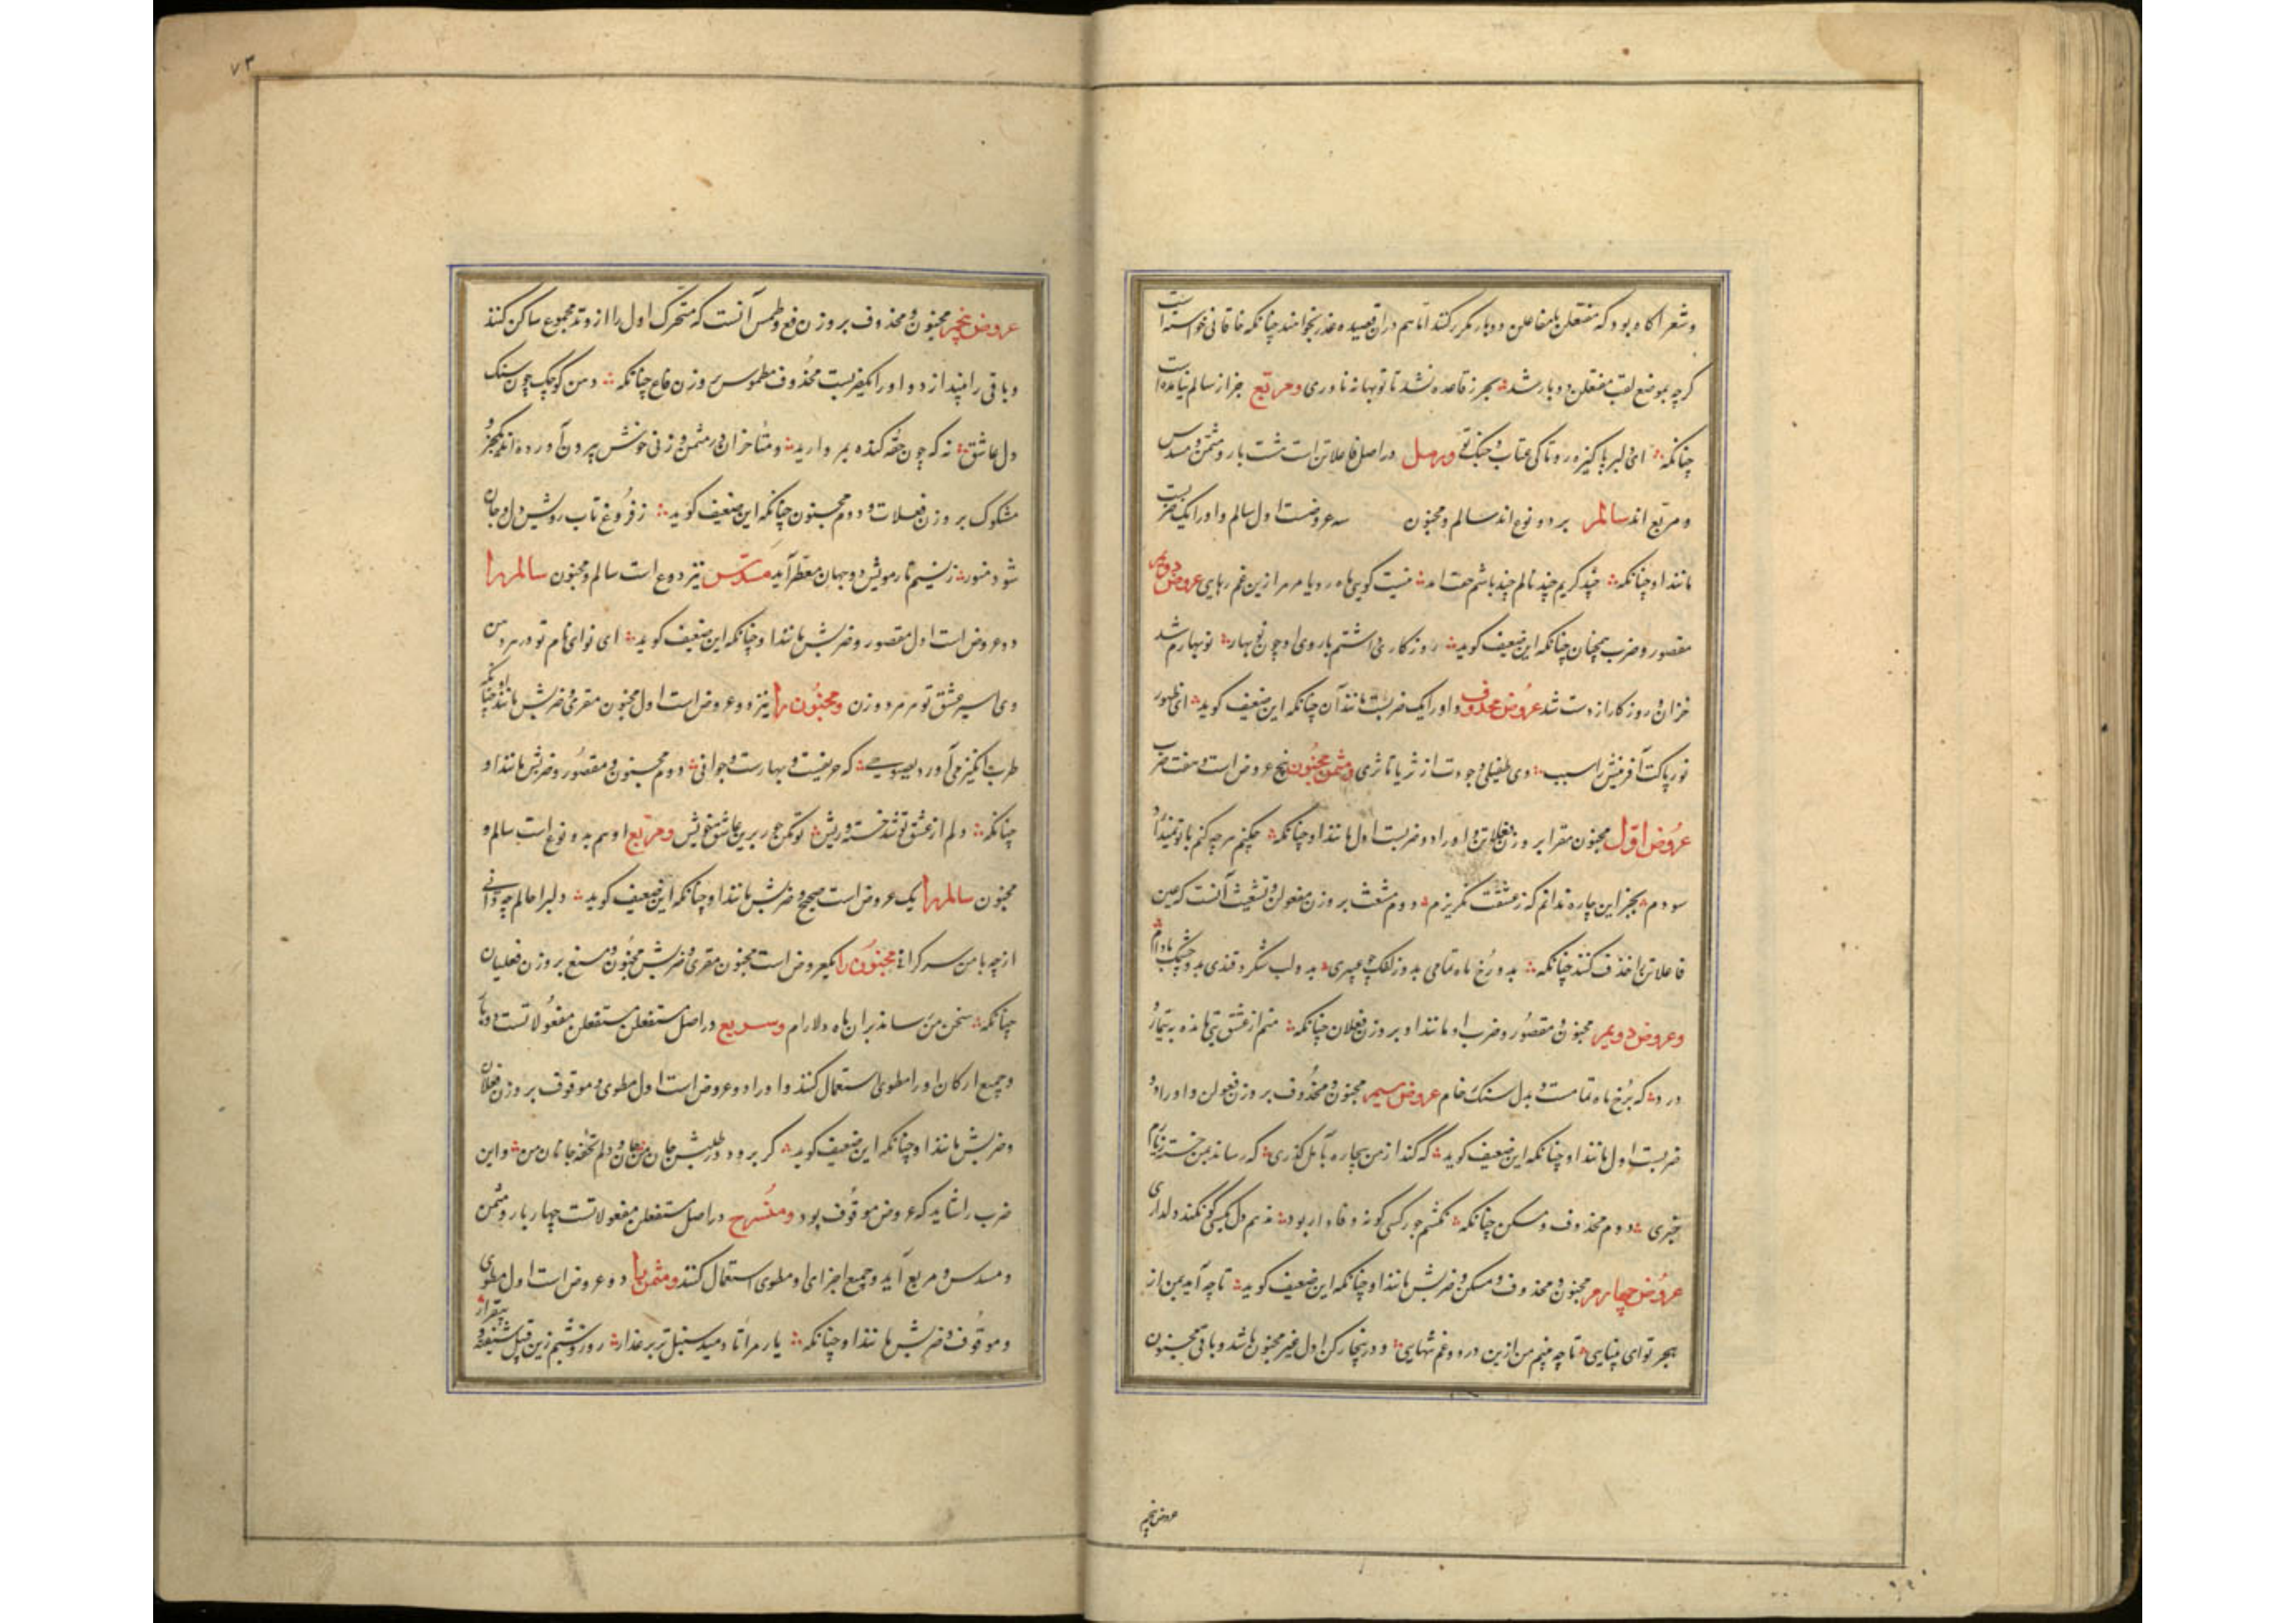 و شعرا گاه بود که مفتعلن با مفاعلن دو بار مکرر کنند اما هم در آن قصیده عذر بخواهند چنانکه خاقانی خواسته است
گرچه بموضع لقب مفتعلن دو بار شد بحر ز قاعده نشد تا تو بهانه ناوری و مربع جز از سالم نیامده است
چنانکه ای دلبر پاکیزه رو تا کی عتاب و جنگ تو و رمل در اصل فاعلاتن است هشت بار و مثمن و مسدس
و مربع اند سالم بر دو نوع اند سالم و مخبون سه عروضست اول سالم و او را یک ضربست
مانند او چنانکه چند گریم چند نالم چند باشم نیست گویی ماه رویا مر مرا زین غم رهایی عروض دویم
مقصور و ضرب همچنان چنانکه این ضعیف گوید روزگاری داشتم با روی او چون نوبهار نوبهارم شد
خزان و روزگار از دست شد عروض محذوف و او را یک ضربست مانند آن چنانکه این ضعیف گوید ای ظهور
نور پاکت آفرینش را سبب وی طفیلی وجودت از ثریا تا ثری و مثمن مخبون پنج عروض است و هفت ضرب
عروض اول مخبون مقرا بر وزن فعلاتن و او را دو ضربست اول مانند او چنانکه چکنم هرچه کنم با تو
سودم بجز این چاره ندانم که ز عشقت بگریزم دوم مشعث بر وزن مفعولن و تشعیث آنست که عین
فاعلاتن را حذف کنند چنانکه بدو رخ ماه تمامی بدو زلفک چو عبیری بدو لب شکر و قندی بدو چشمک بادام
و عروض دویم مخبون و مقصور و ضرب او مانند او بر وزن فعلان چنانکه منم از عشق بتی مانده به تیمار و
درد که برخ ماه تمامست و بدل سنگ خام عروض سیم مخبون و محذوف بر وزن فعولن و او را دو
ضربست اول مانند او چنانکه این ضعیف گوید که کند از من بیچاره گذری که رساند بمن خسته
خبری دوم محذوف و مسکن چنانکه نکشم جور کسی کو نه وفادار بود ندهم دل بکسی کو نکند دلداری
عروض چهارم مخبون و محذوف و مسکن و ضربش مانند او چنانکه این ضعیف گوید تا چه آید بمن از
هجر تو ای بینایی تا چه بینم من ازین درد و غم تنهایی و درینجا رکن اول غیر مخبون باشد و باقی مخبون
عروض پنجم
۷۳
عروض پنجم مخبون و محذوف بر وزن فع و طمس آنست که متحرک اول را از وتد مجموع ساکن کنند
و باقی را بیندازد و او را یکضربست محذوف مطموس بر وزن فاع چنانکه دهن کوچک چون سنگ
دل عاشق نه که چون حقه کنده بمروارید و متأخران در مثمن وزنی خوش بیرون آورده اند یکجزو
مشکول بر وزن فعلات و دوم مخبون چنانکه این ضعیف گوید ز فروغ تاب رویش دل و جان
شود منور ز نسیم تار مویش دو جهان معطر آید مسدس نیز دو نوع است سالم و مخبون سالم را
دو عروض است اول مقصور و ضربش مانند او چنانکه این ضعیف گوید ای نوای نام تو درمرد من
وی اسیر عشق تو هر مرد و زن و مخبون را نیز دو عروض است اول مخبون مقری و ضربش مانند او چنانکه
طرب انگیز می آور که حریفست و بهارست و جوانی دوم مخبون و مقصور و ضربش مانند او
چنانکه دلم از عشق تو شد خسته و ریش تو مکن جور برین عاشق خویش و مربع او هم بدو نوع است سالم و
مخبون سالم را یک عروض است صحیح و ضربش مانند او چنانکه این ضعیف گوید دلبرا حالم چه دانی
از چه با من سر گرانی مخبون را یکعروض است مخبون مقری و ضربش مخبون و مسبغ بر وزن فعلیان
چنانکه سخن من که رساند بر آن ماه دلارام و سریع در اصل مستفعلن مستفعلن مفعولاتست دو بار
و جمیع ارکان او را مطوی استعمال کنند و او را دو عروض است اول مطوی و موقوف بر وزن فاعلان
و ضربش مانند او چنانکه این ضعیف گوید گر برود در طلبش جان من جان و دلم تحفه جانان من و این
ضرب را شاید که عروض موقوف بود و منسرح در اصل مستفعلن مفعولاتست چهار بار و مثمن
و مسدس و مربع آید و جمیع اجزای او مطوی استعمال کنند و مثمن را دو عروض است اول مطوی
و موقوف و ضربش مانند او چنانکه یار مرا تا دمید سنبل تر بر عذار روز و شبم زین قبل شیفته و بیقرار